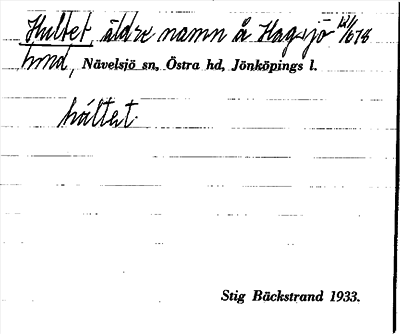 Hultet, äldre namn å Hagsjö
hmd, Nävelsjö sn, Östra hd, Jönköpings l.
húltet.
Stig Bäckstrand 1933.